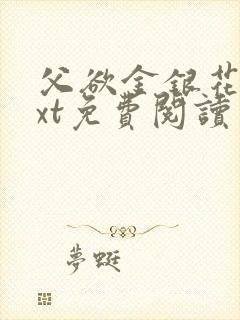 父欲金銀花
xt免費閱讀
夢蜓